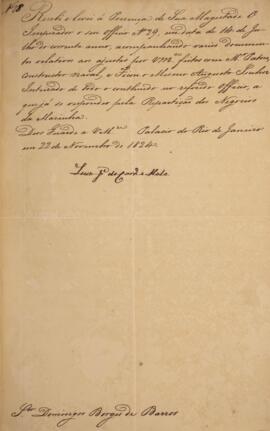 Nº 18
Recebi e levei á Presença de Sua Magestade O
Imperador o seu officio Nº 29, em data de 14 de Ju-
lho do corrente anno, acompanhando varios documen-
tos relativos aos ajustes por VMce feitos com Mr
Constructor naval, e Ficou o Mesmo Augusto Senhor
Inteirado de todo o conthiudo no referido Officio, a
que já se respondeo pela Repartição dos Negocios
da Marinha.
Deos Guarde a VMce Palacio do Rio de Janeiro
em 22 de Novembro de 1824.
Luiz Jé de Carvº e Mello
Snr Domingos Borges de Barros